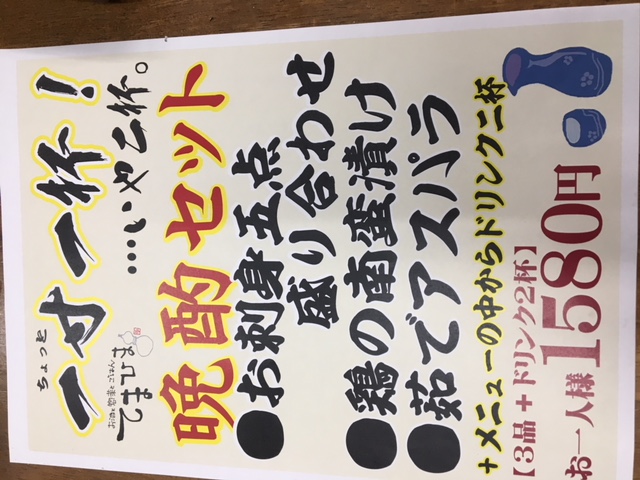 ちょっと
一寸一杯!
…いや乙杯。
てまひま
晩酌セット
●お刺身五点
盛り合わせ
●鶏の南蛮漬け
●茹でアスパラ
+メニューの中からドリンク二杯
【3品+ドリンク2杯】
お一人様1580円